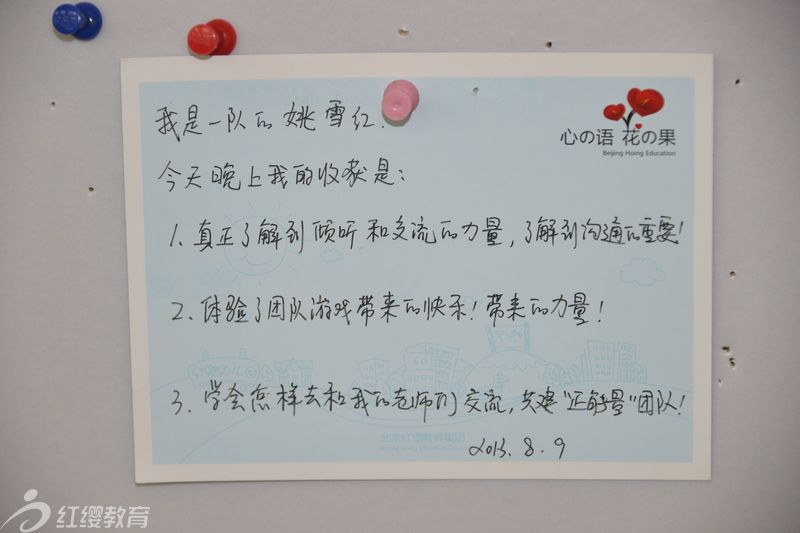 我是一队的姚雪红.
心の语 花の果
Beijing Hoing Education
今天晚上我的收获是:
1、真正了解到倾听和交流的力量,了解到沟通的重要!
2、体验了团队游戏带来的快乐!带来的力量!
3、学会怎样去和我的老师们交流,共建"正能量"团队!
北京红缨教育集团
2013.8.9
红缨教育